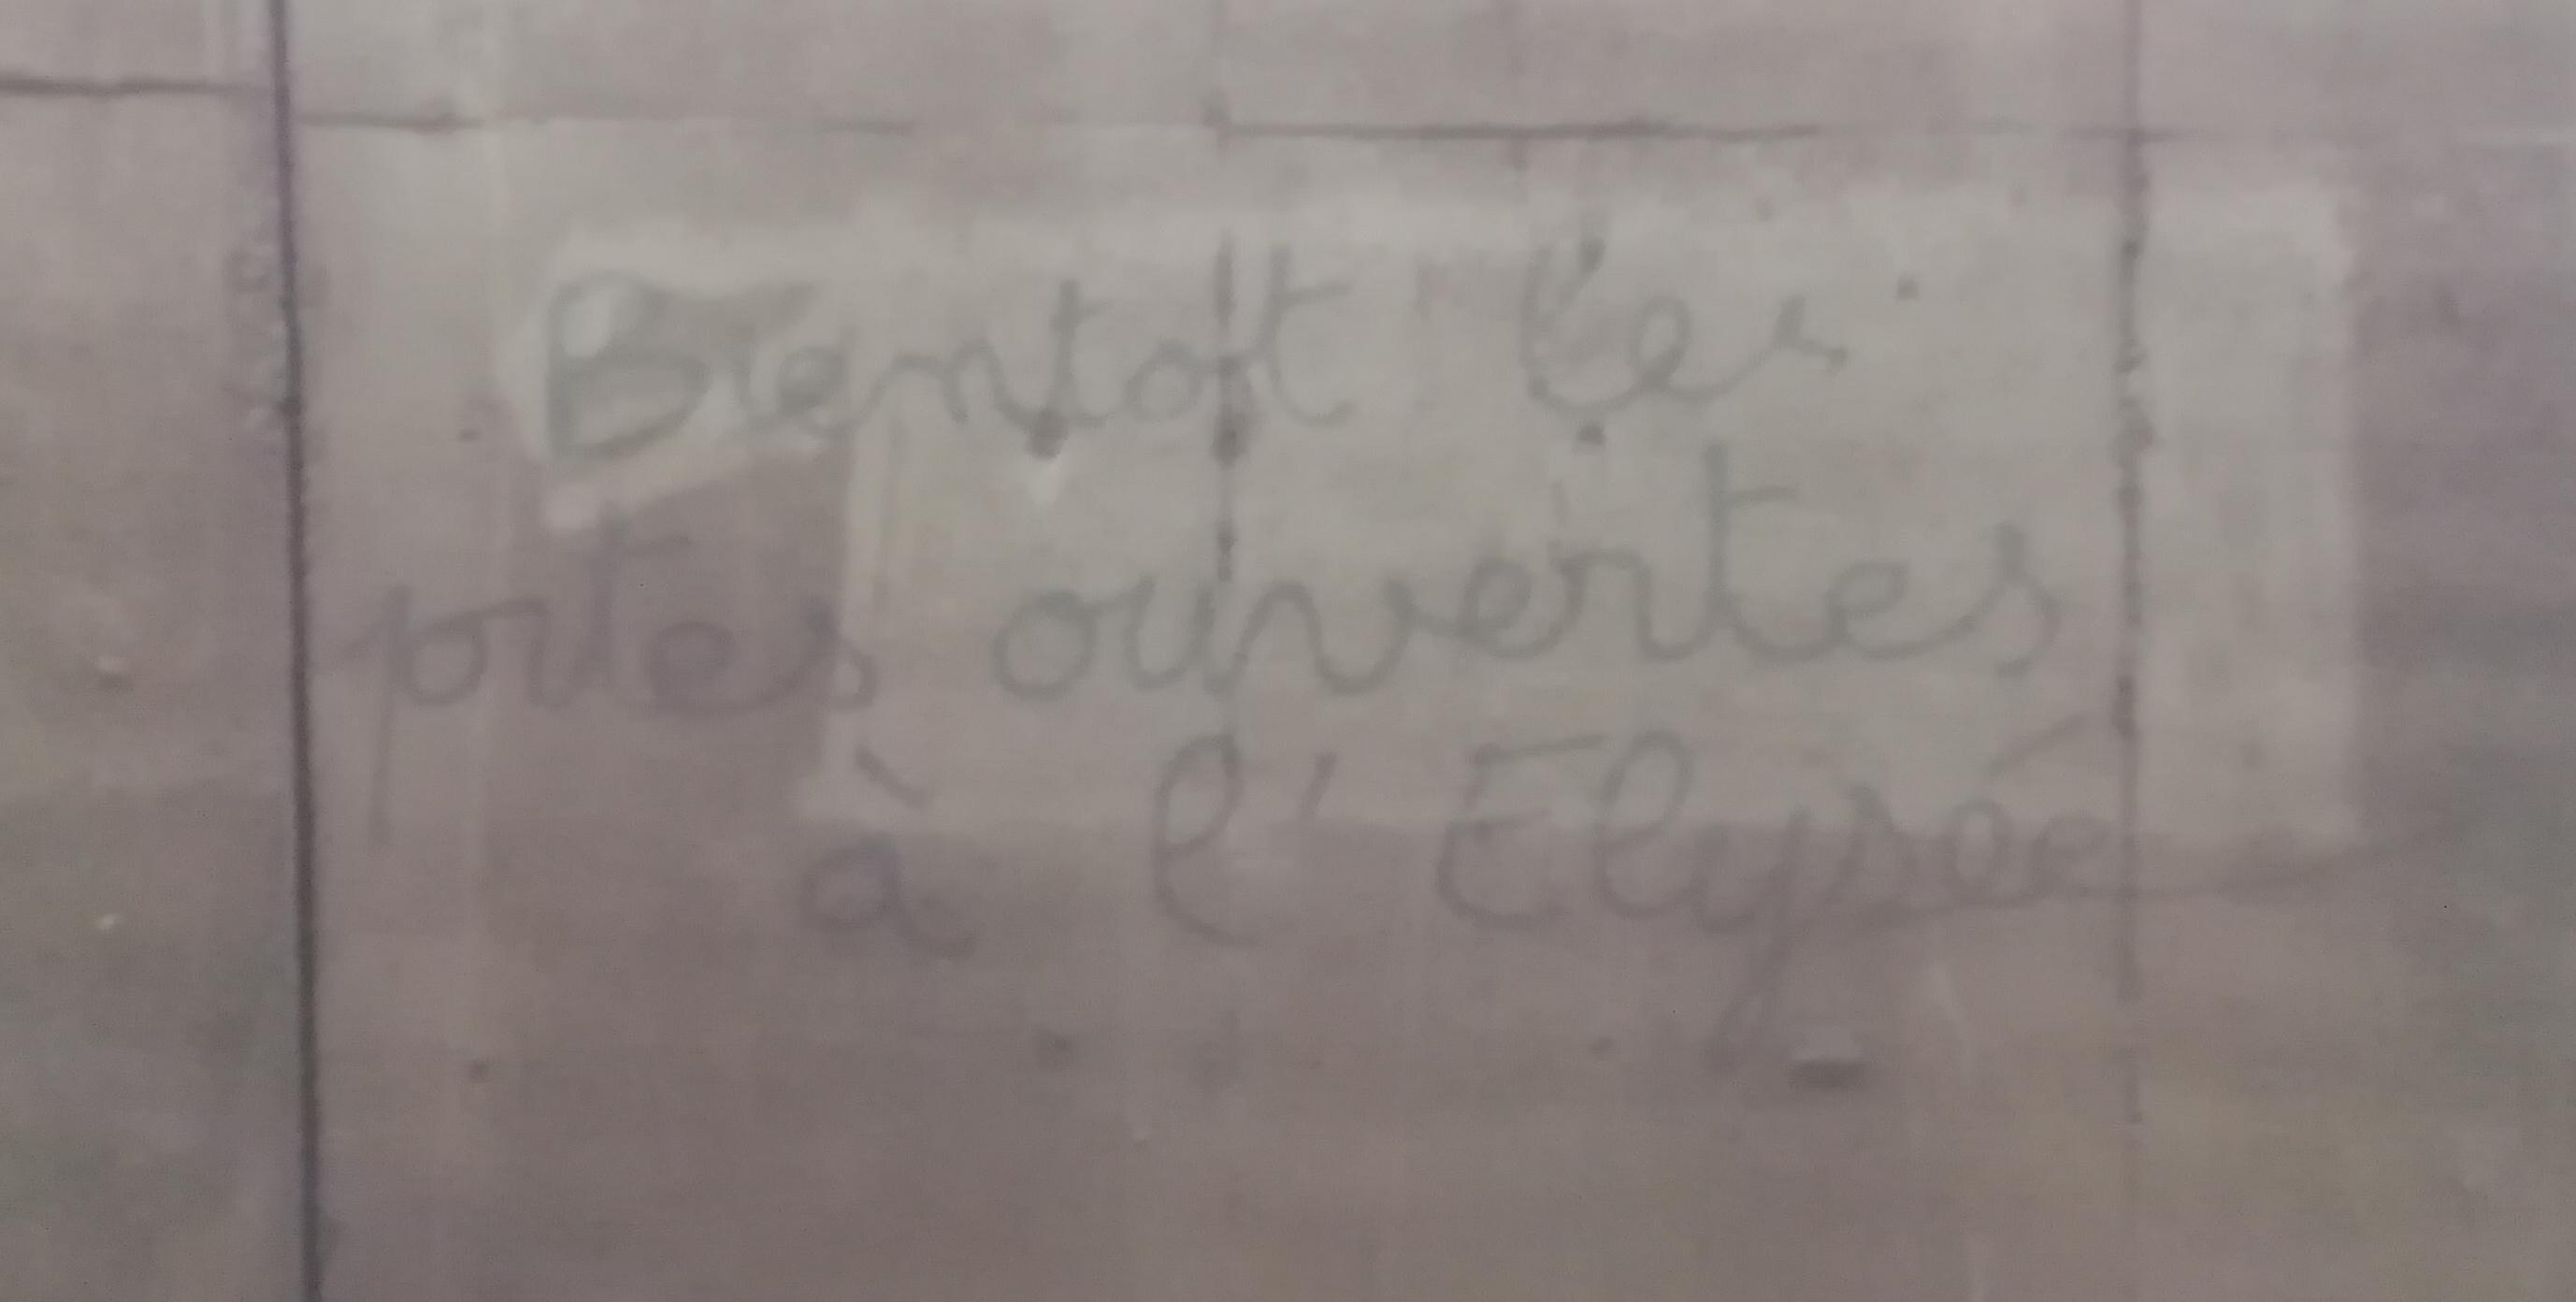 Bientot les
portes ouvertes
à l'Elysée